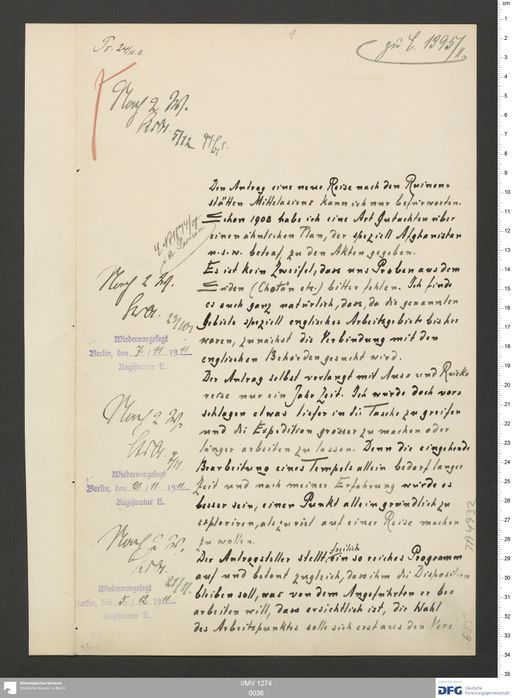 Pr. 24/10. 11.
1
zu E. 1395/11
Nach 2 W.
5/12
Den Antrag eine neue Reise nach den Ruinen=
stätten Mittelasiens kann ich nur befürworten.
Schon 1908 habe ich eine Art Gutachten über
einen ähnlichen Plan, der speziell Afghanistan
u.s.w. betraf, zu den Akten gegeben.
Es ist kein Zweifel, dass uns Proben aus dem
Süden (Chotän etc.) bitter fehlen. Ich finde
es auch ganz natürlich, dass, da die genannten
Gebiete speziell englisches Arbeitsgebiet bisher
waren, zunächst die Verbindung mit den
englischen Behörden gesucht wird.
Der Antrag selbst verlangt mit Aus= und Rück=
reise nur ein Jahr Zeit. Ich würde doch vor=
schlagen etwas tiefer in die Tasche zu greifen
und die Expedition grösser zu machen oder
länger arbeiten zu lassen. Denn die eingehende
Bearbeitung eines Tempels allein bedarf langer
Zeit und nach meiner Erfahrung würde es
besser sein, einen Punkt allein gründlich zu
explorieren, als zu viel auf einer Reise machen
zu wollen.
Der Antragsteller stellt freilich ein so reiches Programm
auf und betont zugleich, dass ihm die Disposition
bleiben soll, was von dem Angeführten er be=
arbeiten will, dass ersichtlich ist, die Wahl
des Arbeitspunktes solle sich erst aus den Ver=
Nach 2 W.
Wiedervorgelegt
Berlin, den 7. / 11 1911
Registratur E.
Nach 2 W.
Wiedervorgelegt
Berlin, den 21. / 11 1911
Registratur E.
Nach 2 W.
Wiedervorgelegt
Berlin, den 5. / 12 1911
Registratur E.
TA 4932
Ethnologisches Museum
Staatliche Museen zu Berlin
I/MV 1274
0036
DFG Deutsche
Forschungsgemeinschaft